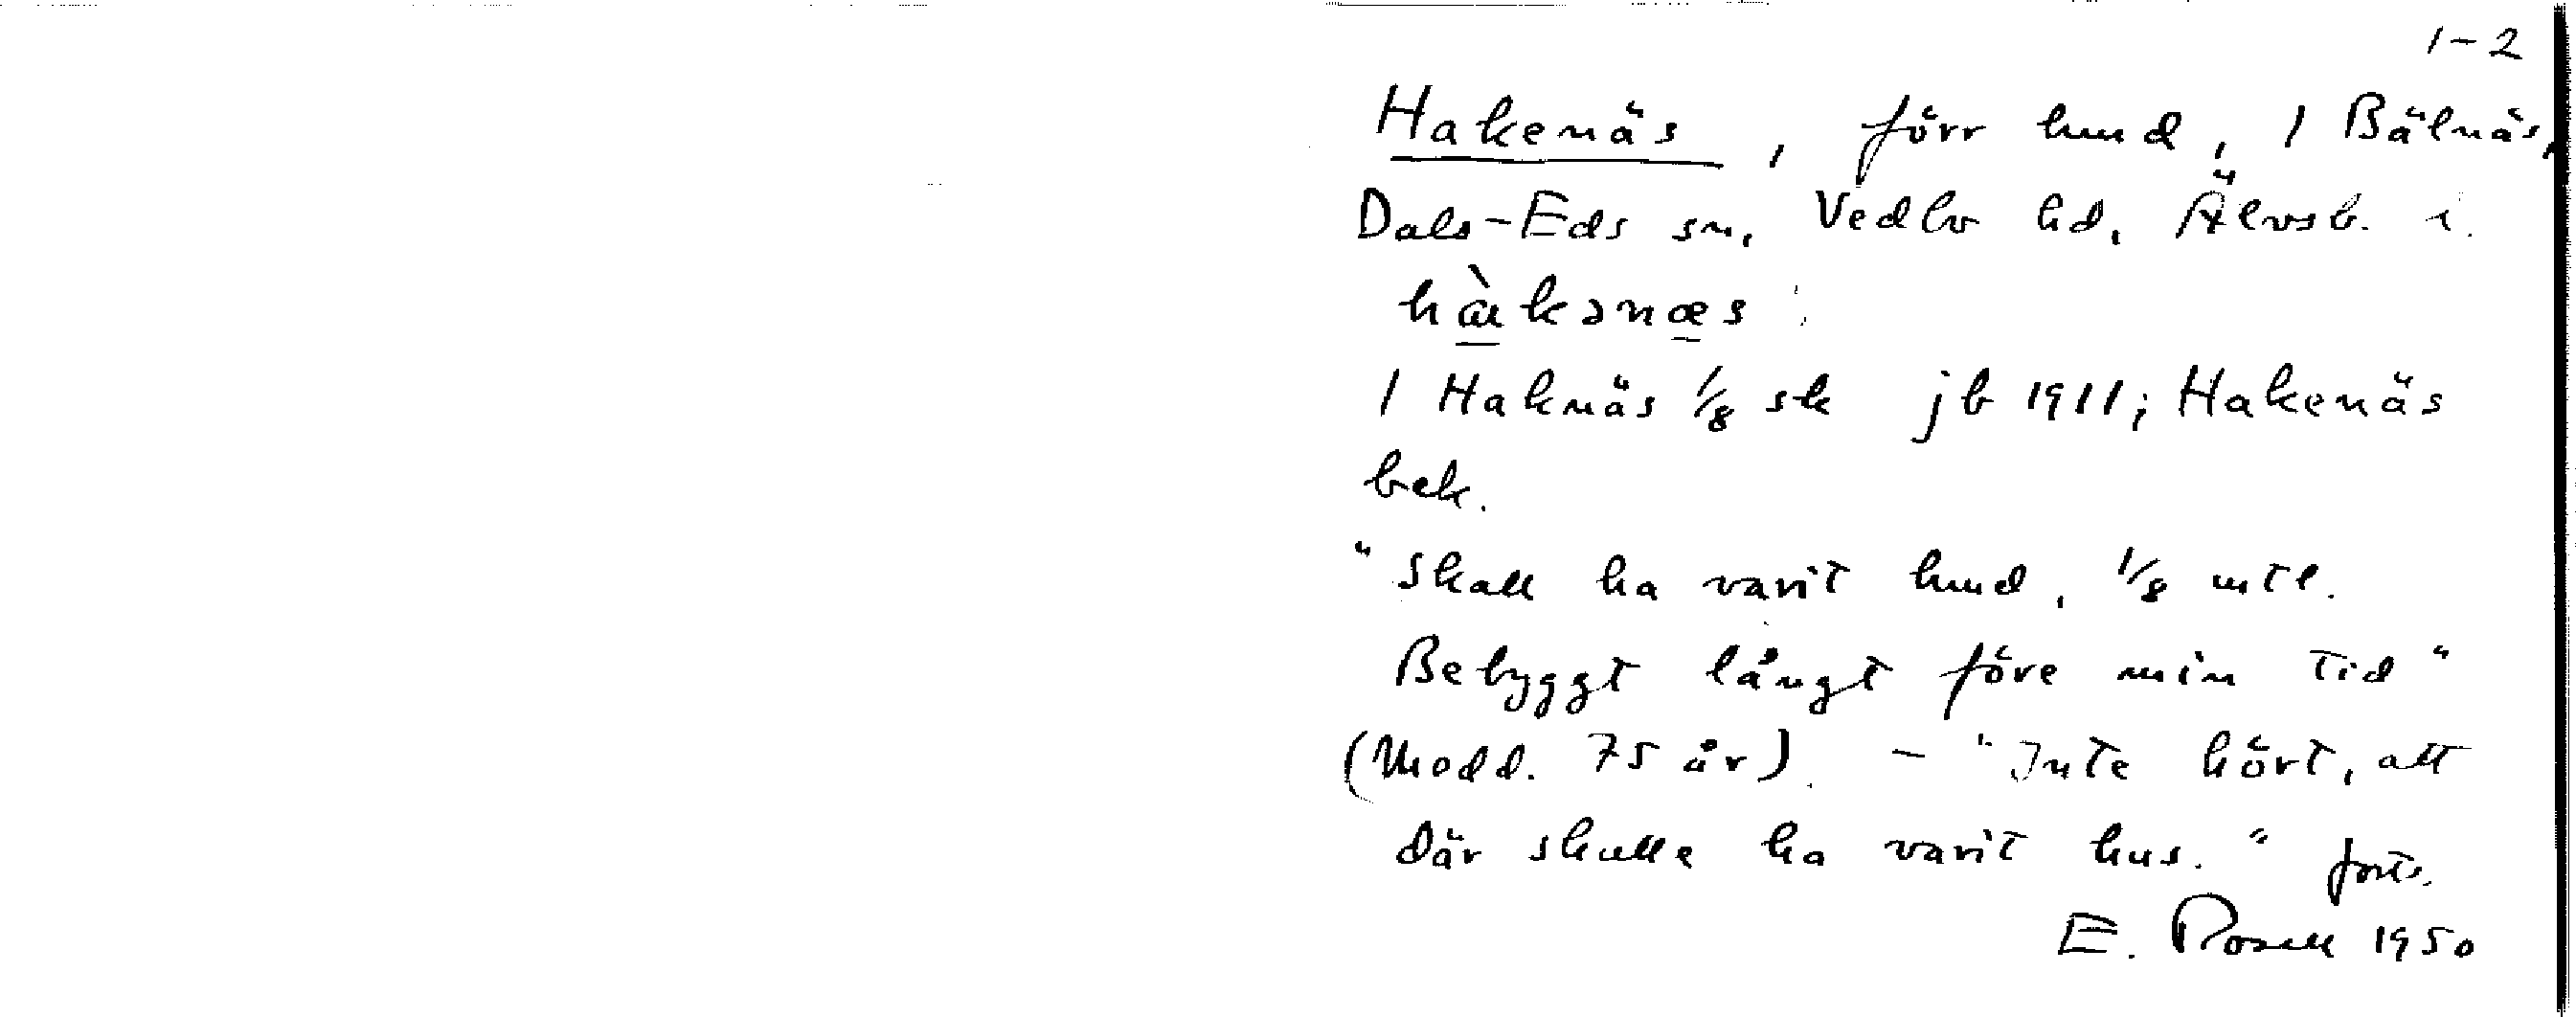 1-2
Hakenäs, förr hmd, 1 Bälnäs,
Dals-Eds sn, Vedbo hd, Älvsb. l.
hàkənæs
1 Haknäs 1/8 sk jb 1911; Hakenäs
bek.
"Skall ha varit hmd, 1/8 mtl.
Bebyggt långt före min tid"
(Medd. 75 år). - "Inte hört, att
där skulle ha varit hus." forts.
E. Rosell 1950